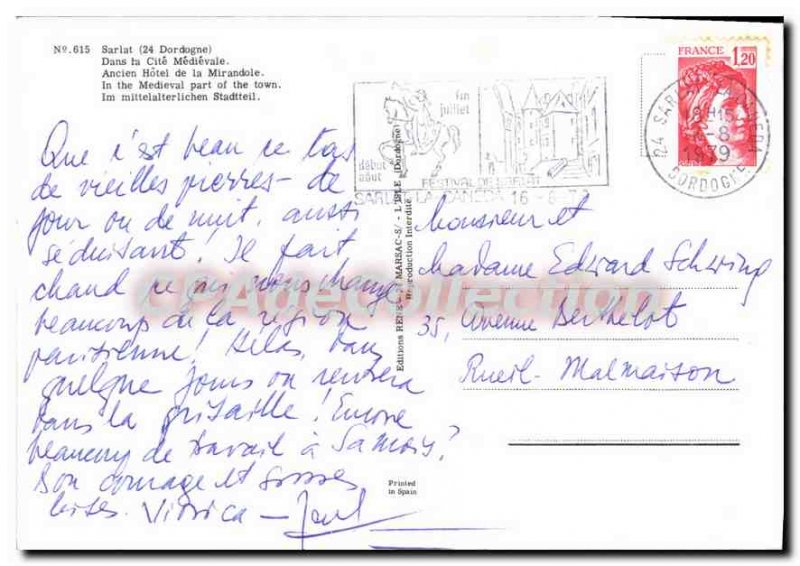 Nº.615 Sarlat (24 Dordogne)
Dans la Cité Médiévale.
Ancien Hôtel de la Mirandole.
In the Medieval part of the town.
Im mittelalterlichen Stadtteil.
Que c'est beau ce tas
de vieilles pierres - de
jour ou de nuit, aussi
séduisant! Il fait
chaud ce qui nous change
beaucoup de la région
parisienne! Hélas, dans
quelque jours on rentrera
dans la grisaille! Encore
beaucoup de travail à Samois?
Bon courage et grosses
bises.
Editions RENE MARSAC-S/-L'ISLE (Dordogne)
Reproduction Interdite
Printed
in Spain
fin
juillet
début
août
FESTIVAL DE SARLAT
SARLAT LA CANEDA 16-8
FRANCE 1,20
24 SARLAT LA CANEDA
8H15
-8
1979
DORDOGNE
Monsieur et
Madame Edward Schwing
35, Avenue Berthelot
Rueil-Malmaison
CPAdeCollection